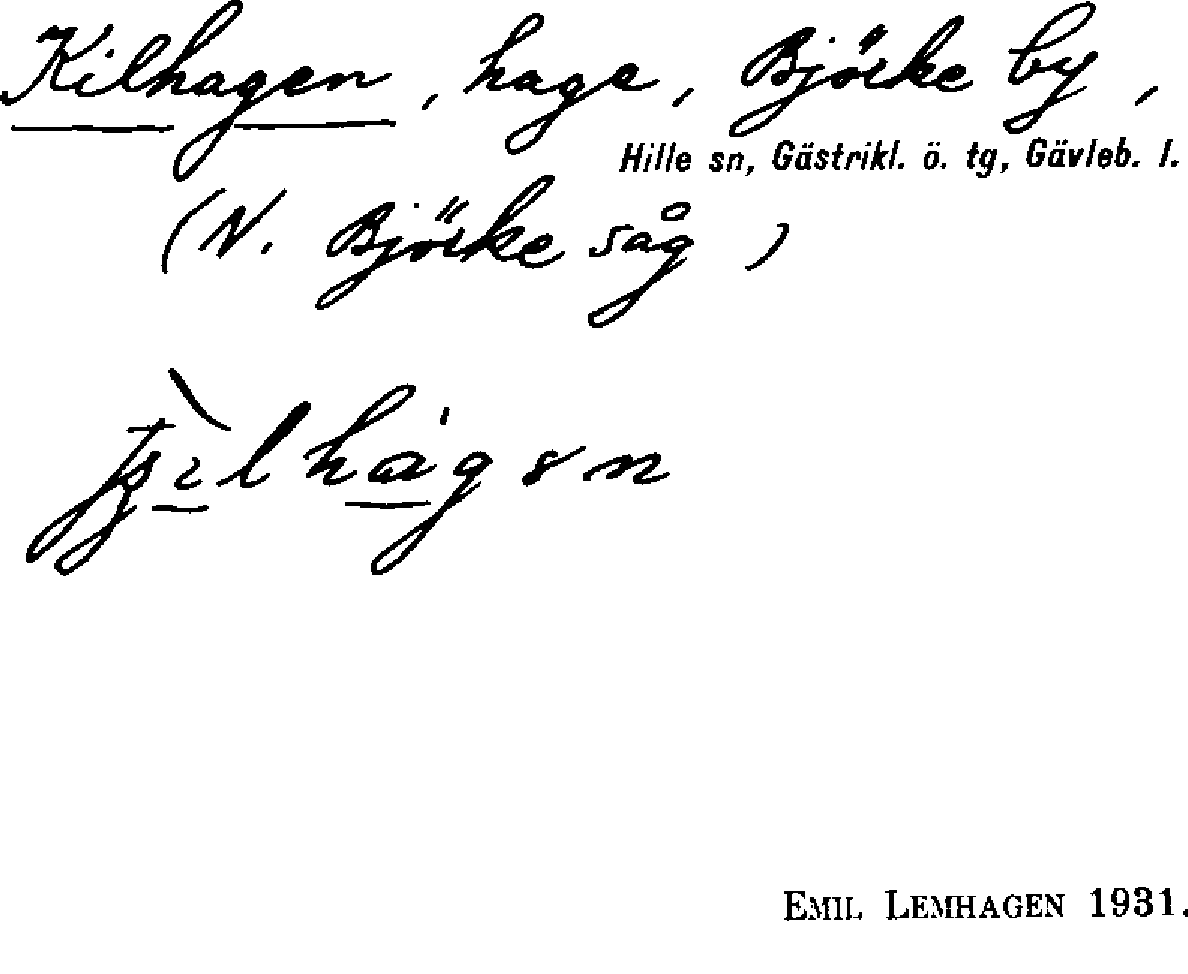 Kilhagen, hage, Björke by,
Hille sn, Gästrikl. ö. tg, Gävleb. l.
(N. Björke såg)
EMIL LEMHAGEN 1931.